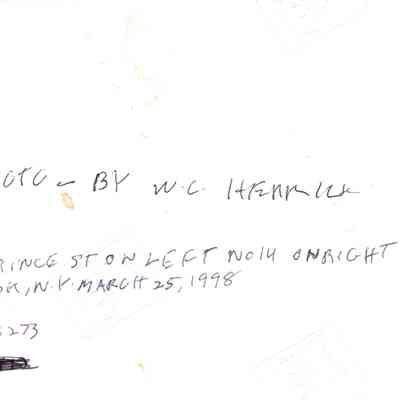 OTO - BY W.C. HERRICK
RINCE ST ON LEFT NO 14 ON RIGHT
RK, N.Y. MARCH 25, 1998
273